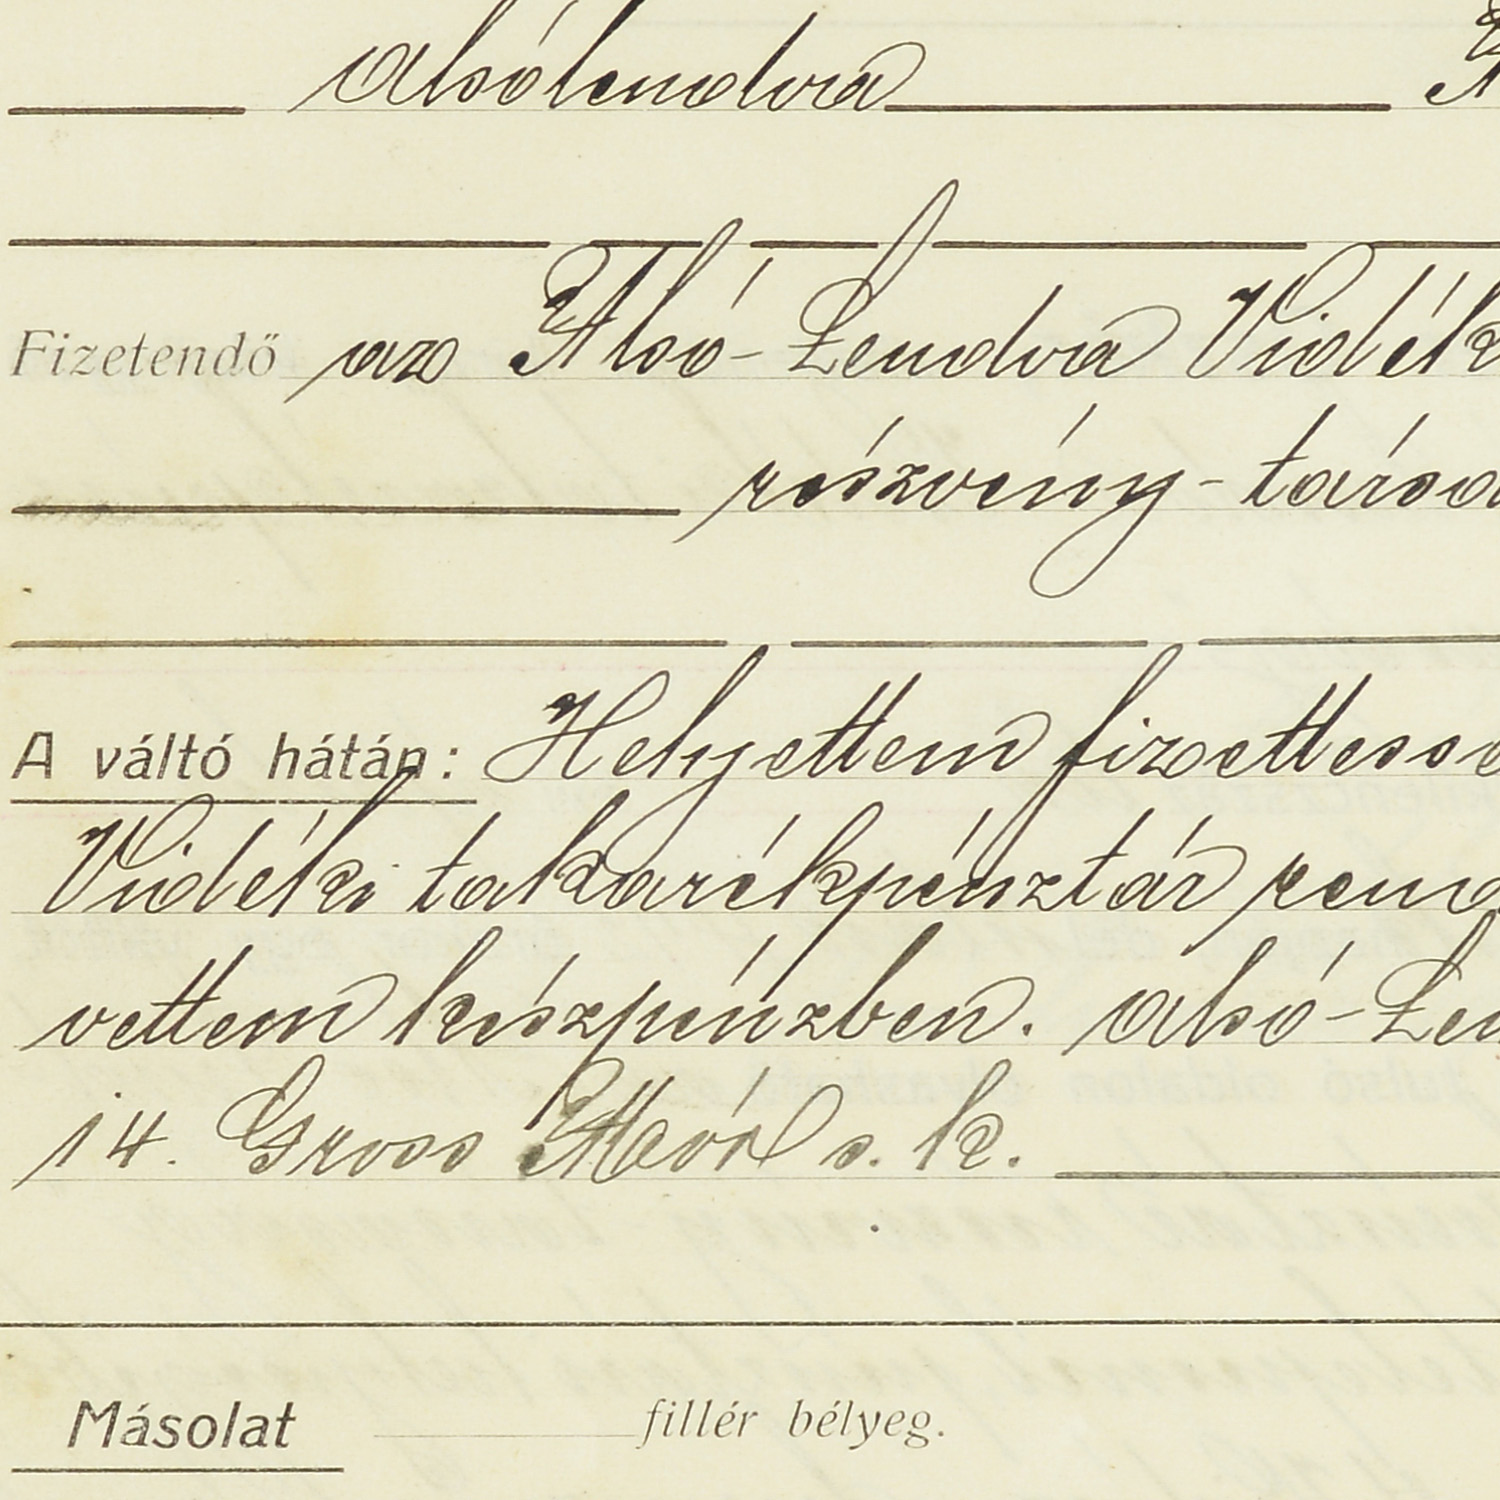 alsólendva
Fizetendő az Alsó-Lendva Vidék
részvény-társa
A váltó hátán: Helyettem fizettesse
Vidéki takarékpénztár rend
vettem készpénzben. alsó-Len
14. Gross Mór s. k.
Másolat fillér bélyeg.